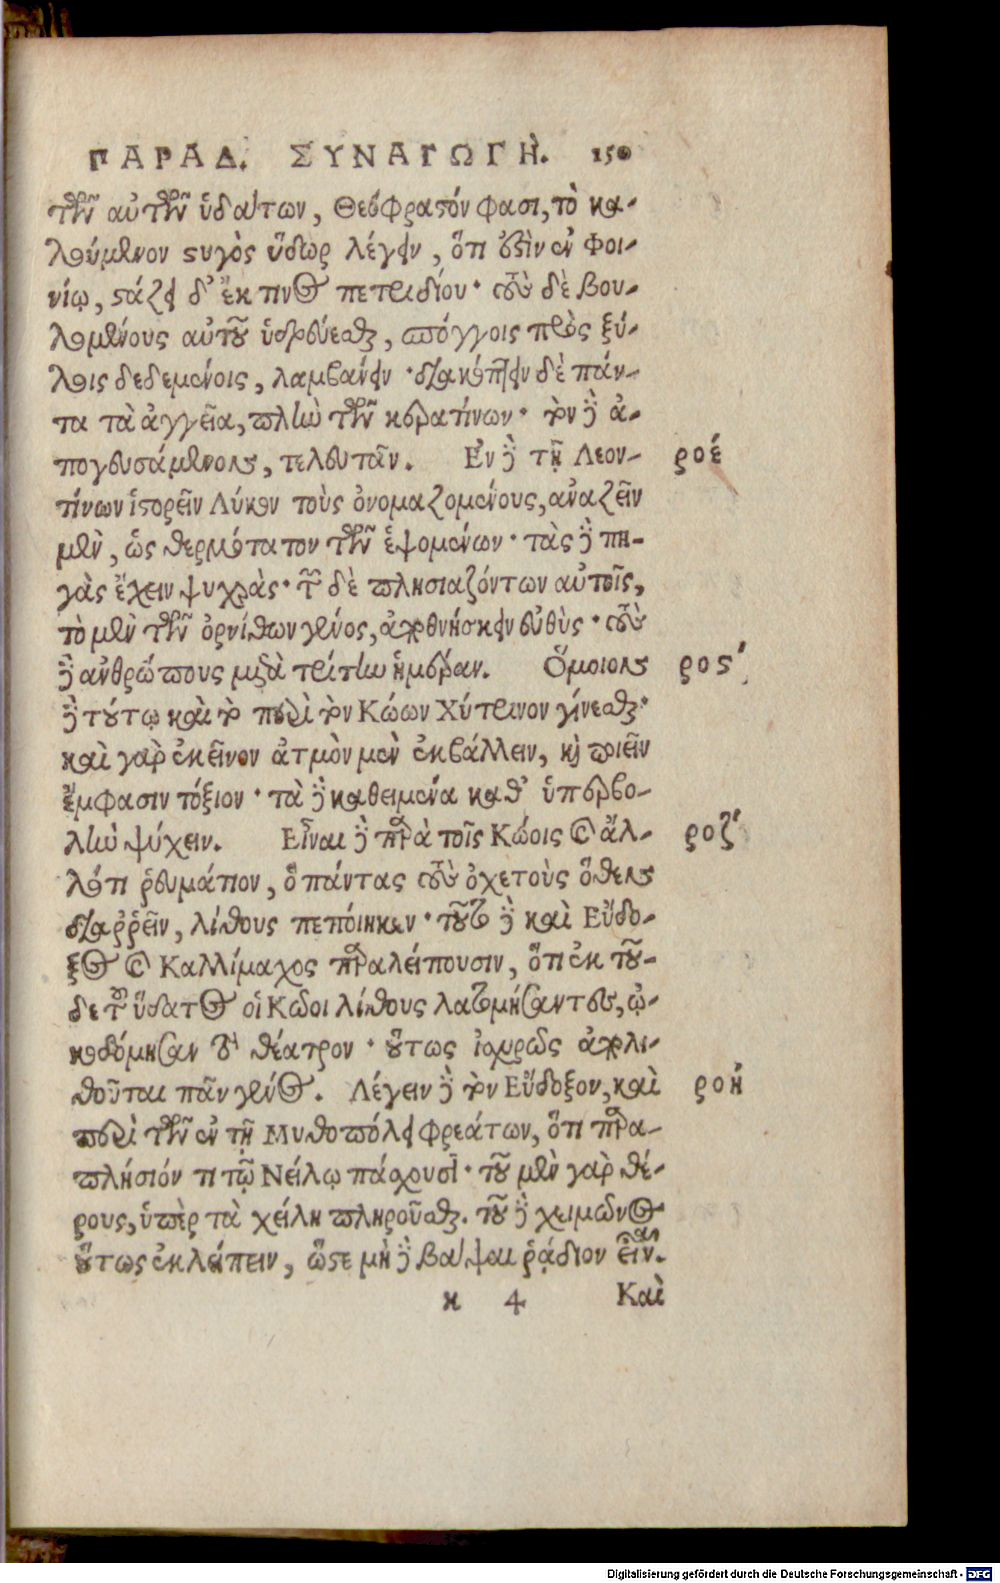 ΠΑΡΑΔ. ΣΥΝΑΓΩΓῊ. 150
τῶν αὐτῶν ὑδάτων, Θεόφραστόν φασι, τὸ κα-
λούμενον στυγὸς ὕδωρ λέγειν, ὅτι ἐστὶν ἐν Φοι-
νίῳ, στάζει δ᾽ ἔκ τινος πετριδίου· τοὺς δὲ βου-
λομένους αὐτοῦ ὑδρεύεσθαι, σπόγγοις πρὸς ξύ-
λοις δεδεμένοις, λαμβάνειν· διακόπτειν δὲ πάν-
τα τὰ ἀγγεῖα, πλὴν τῶν κερατίνων· τὸν δὲ ἀ-
πογευσάμενον, τελευτᾶν. Ἐν δὲ τῇ Λεον- ροέ
τίνων ἱστορεῖν Λύκον τοὺς ὀνομαζομένους, ἀναζεῖν
μὲν, ὡς θερμότατον τῶν ἑψομένων· τὰς δὲ πη-
γὰς ἔχειν ψυχράς· τῶν δὲ πλησιαζόντων αὐτοῖς,
τὸ μὲν τῶν ὀρνίθων γένος, ἀποθνήσκειν εὐθύς· τοὺς
δὲ ἀνθρώπους μετὰ τρίτην ἡμέραν. Ὅμοιον ρος΄
δὲ τούτῳ καὶ τὸ περὶ τὸν Κώων Χύτρινον γίνεσθαι·
καὶ γὰρ ἐκεῖνον ἀτμὸν μὲν ἐκβάλλειν, καὶ ποιεῖν
ἔμφασιν τόξιον· τὰ δὲ καθειμένα καθ᾽ ὑπερβο-
λὴν ψύχειν. Εἶναι δὲ παρὰ τοῖς Κώοις καὶ ἄλ- ροζ΄
λό τι ῥευμάτιον, ὃ πάντας τοὺς ὀχετοὺς ὅθεν
διαῤῥεῖν, λίθους πεποίηκεν· τοῦτο δὲ καὶ Εὔδο-
ξος καὶ Καλλίμαχος παραλείπουσιν, ὅτι ἐκ τοῦ-
δε τοῦ ὕδατος οἱ Κῶοι λίθους λατομήσαντες, ᾠ-
κοδόμησαν τὸ θέατρον· οὕτως ἰσχυρῶς ἀπολι-
θοῦται πᾶν γένος. Λέγειν δὲ τὸν Εὔδοξον, καὶ ροή
περὶ τῶν ἐν τῇ Μυθοπόλει φρεάτων, ὅτι παρα-
πλήσιόν τι τῷ Νείλῳ πάσχουσι· τοῦ μὲν γὰρ θέ-
ρους, ὑπὲρ τὰ χείλη πληροῦσθαι. τοῦ δὲ χειμῶνος
οὕτως ἐκλείπειν, ὥστε μὴ δὲ βάψαι ῥᾴδιον εἶναι.
κ 4 Καὶ
Digitalisierung gefördert durch die Deutsche Forschungsgemeinschaft - DFG